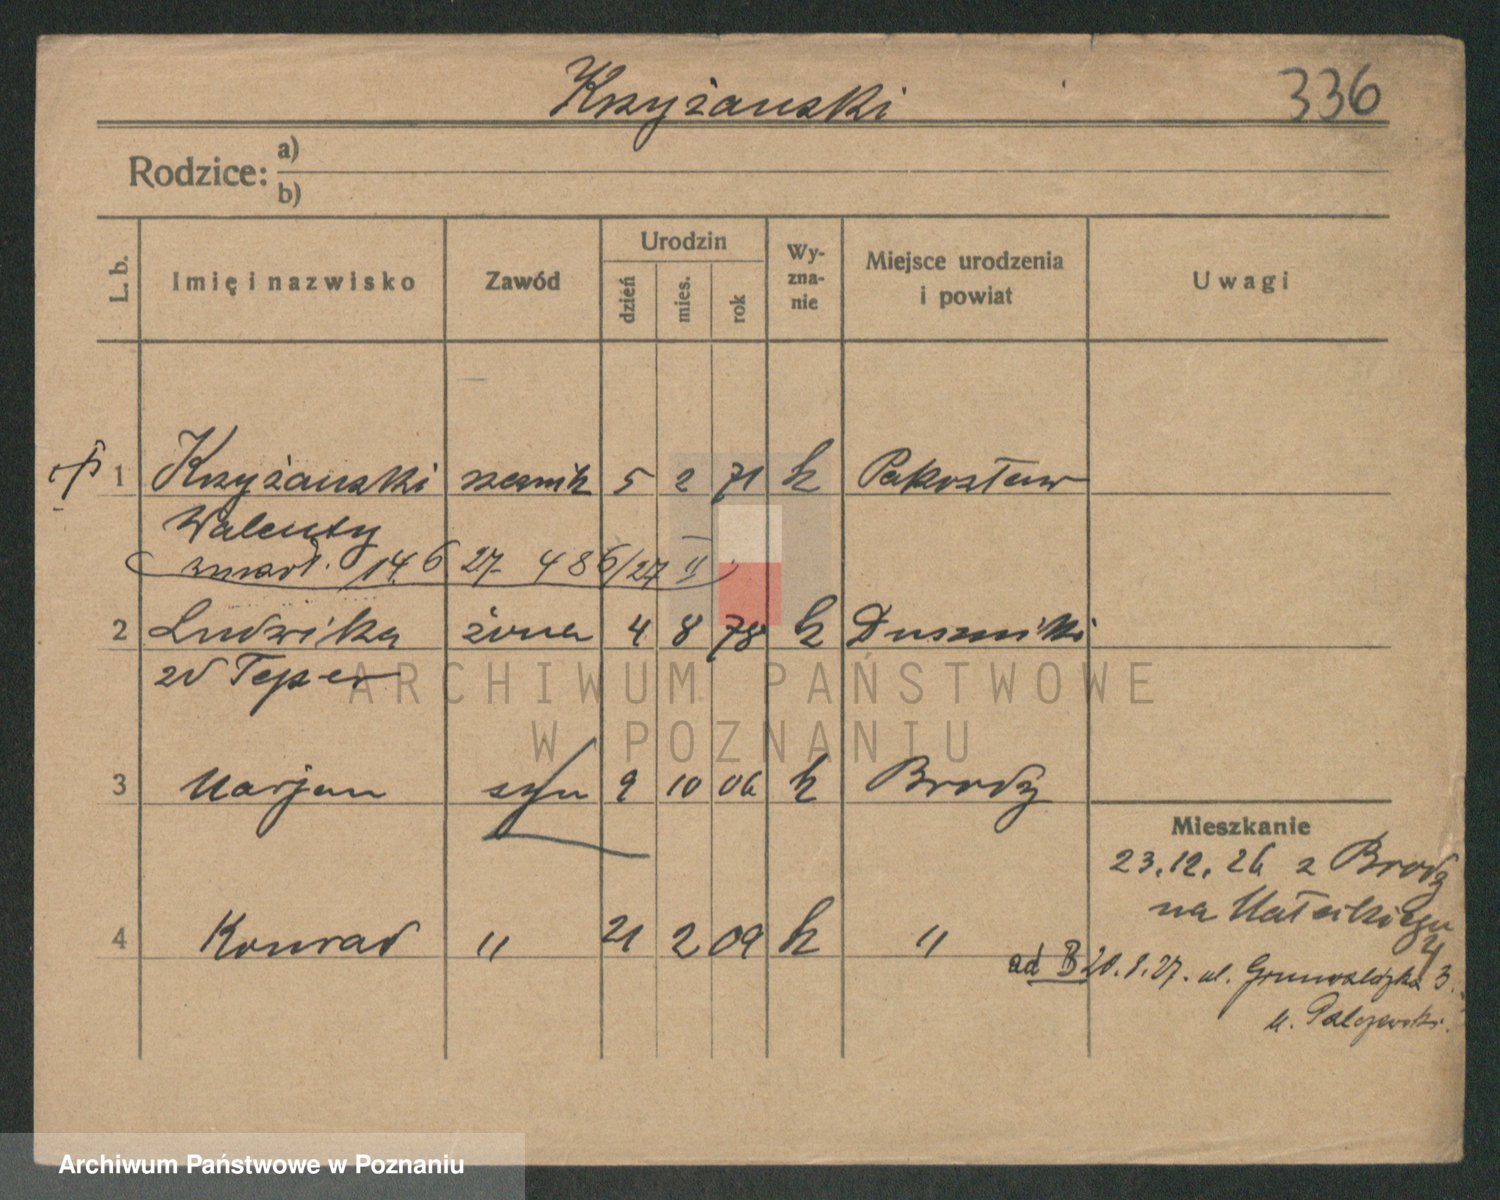 Krzyżanski
336
Rodzice: a)
b)
L. b.
Imię i nazwisko
Zawód
Urodzin
dzień
mies.
rok
Wy-
zna-
nie
Miejsce urodzenia
i powiat
Uwagi
1 Krzyżanski 5 2 71 k Pakosław
Walenty
zmarł. 14.6 27. 486/27 II
2 Ludwika żona 4 8 78 k Duszniki
3 Marjan syn 9 10 06 k Brody
Mieszkanie
23.12.26 z Brody
na
4 Konrad " 21 2 09 k "
4
ad 3 20.8.27. ul. Grunwaldzka 3.
u. Palczewski.
ARCHIWUM PAŃSTWOWE
W POZNANIU
Archiwum Państwowe w Poznaniu